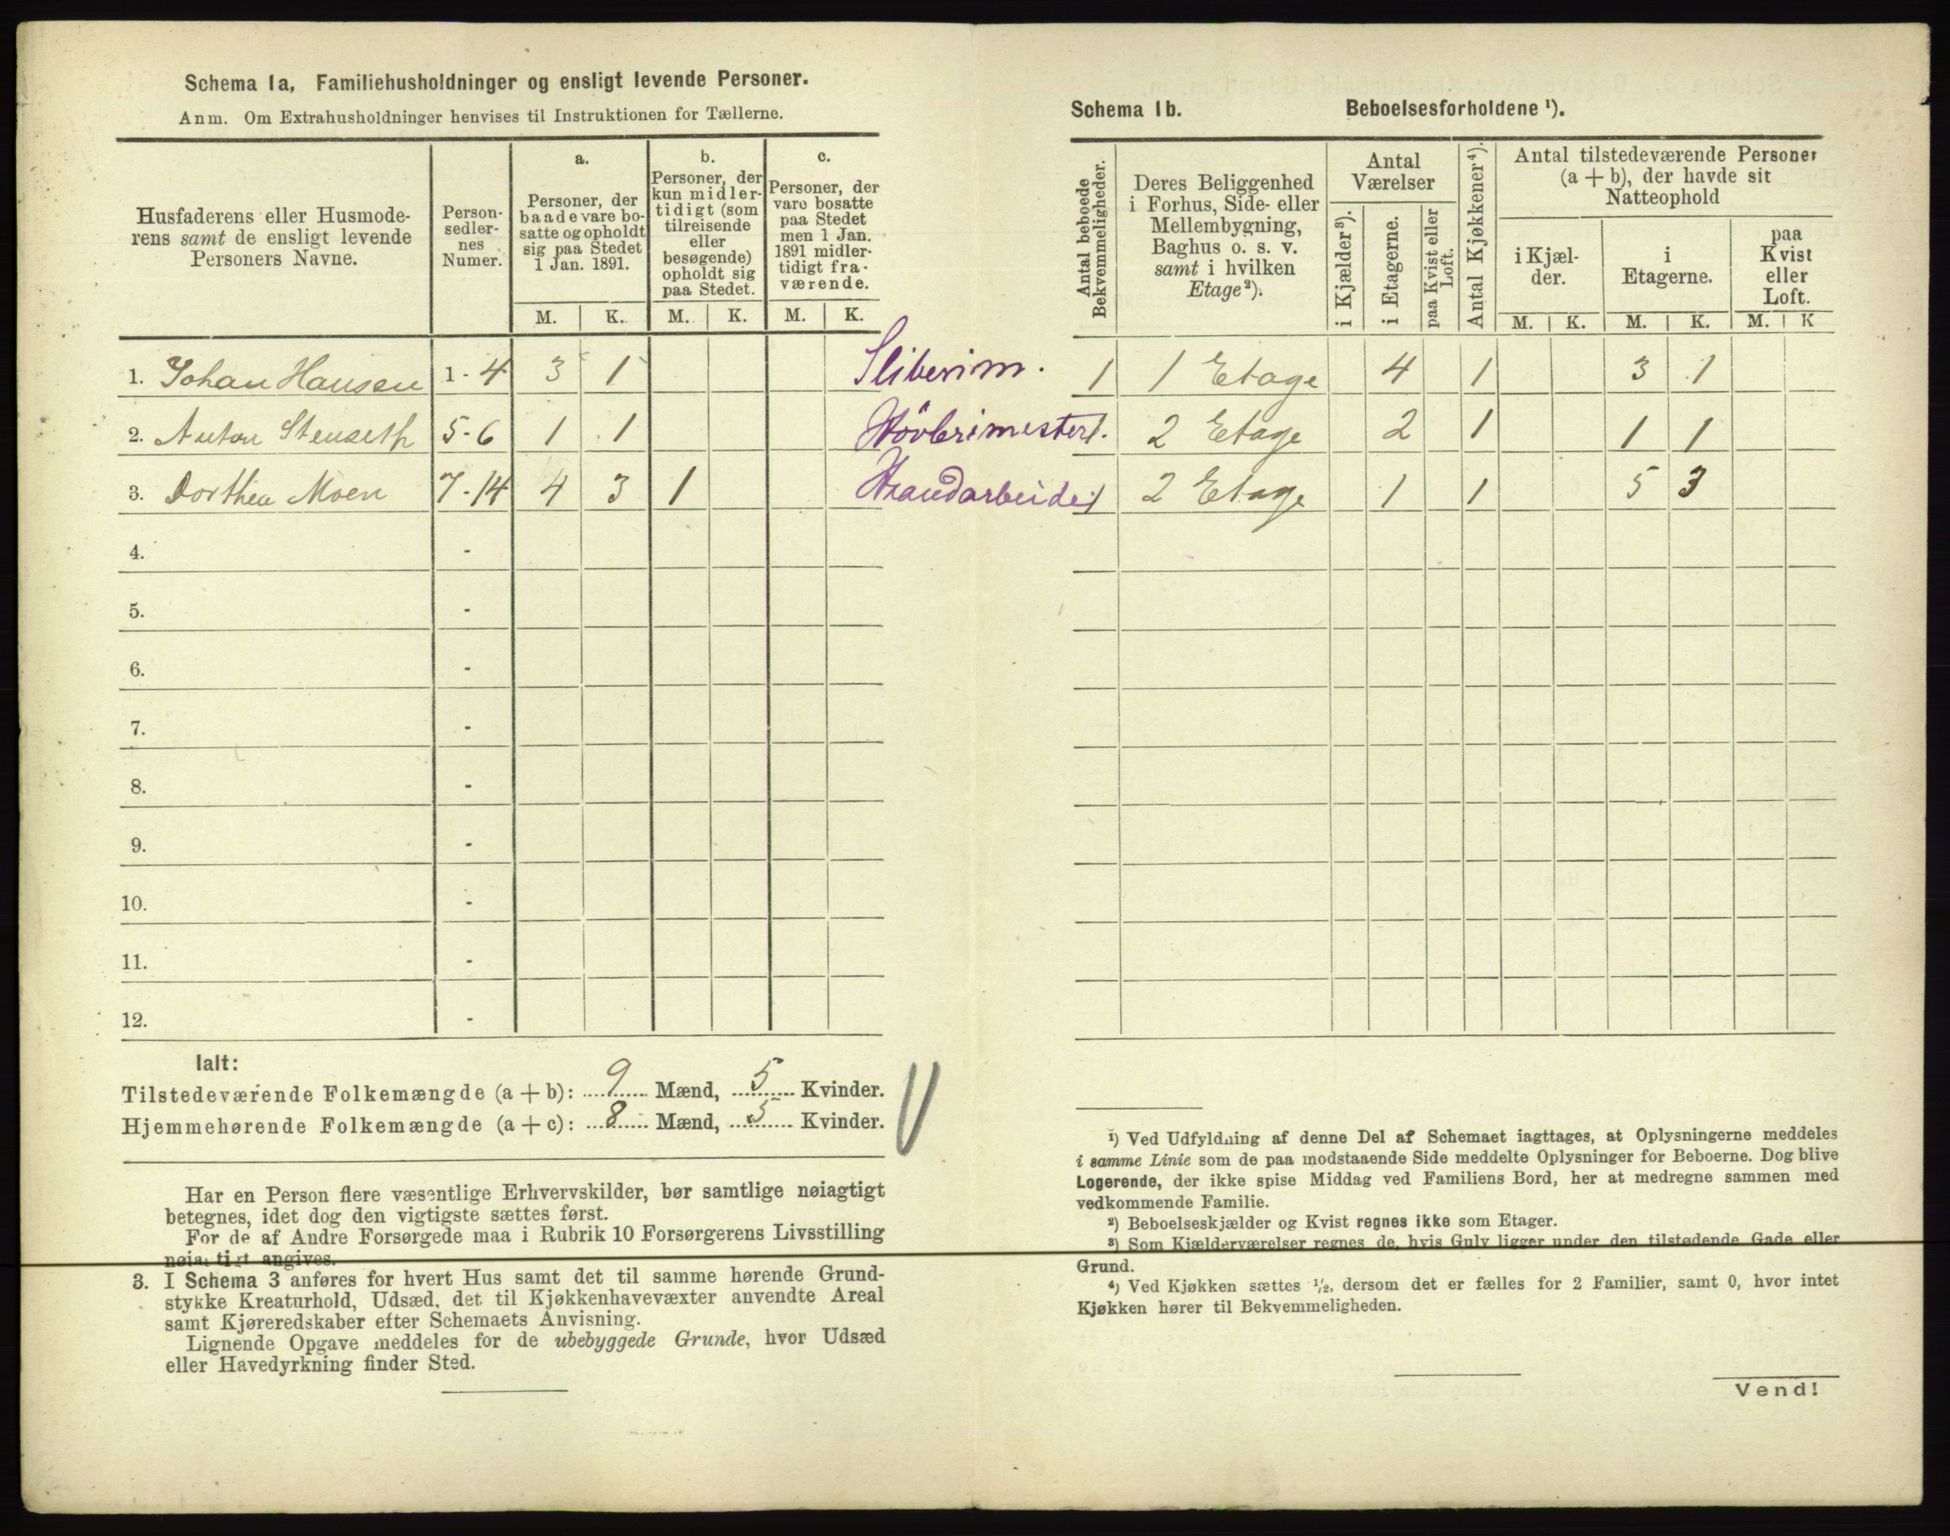 Schema 1a, Familiehusholdninger og ensligt levende Personer.
Anm. Om Extrahusholdninger henvises til Instruktionen for Tællerne.
Husfaderens eller Husmode-
rens samt de ensligt levende
Personers Navne.
Person-
sedler-
nes
Numer.
a.
Personer, der
baade vare bo-
satte og opholdt
sig paa Stedet
1 Jan. 1891.
b.
Personer, der
kun midler-
tidigt (som
tilreisende
eller
besøgende)
opholdt sig
paa Stedet.
c.
Personer, der
vare bosatte
paa Stedet
men 1 Jan.
1891 midler-
tidigt fra-
værende.
M. K. M. K. M. K.
1. Johan Hansen 1-4 3 1
2. Anton Stenseth 5-6 1 1
3. Dorthea Moen 7-14 4 3 1
4. -
5. -
6. -
7. -
8. -
9. -
10. -
11. -
12. -
Ialt:
Tilstedeværende Folkemængde (a + b): 9 Mænd, 5 Kvinder.
Hjemmehørende Folkemængde (a + c): 8 Mænd, 5 Kvinder.
Har en Person flere væsentlige Erhvervskilder, bør samtlige nøiagtigt
betegnes, idet dog den vigtigste sættes først.
For de af Andre Forsørgede maa i Rubrik 10 Forsørgerens Livsstilling
nøiagtigt angives.
3. I Schema 3 anføres for hvert Hus samt det til samme hørende Grund-
stykke Kreaturhold, Udsæd, det til Kjøkkenhavevæxter anvendte Areal
samt Kjøreredskaber efter Schemaets Anvisning.
Lignende Opgave meddeles for de ubebyggede Grunde, hvor Udsæd
eller Havedyrkning finder Sted.
Schema 1b. Beboelsesforholdene ¹).
Antal beboede
Bekvemmeligheder.
Deres Beliggenhed
i Forhus, Side- eller
Mellembygning,
Baghus o. s. v.
samt i hvilken
Etage²).
Antal
Værelser
i Kjælder³).
i Etagerne.
paa Kvist eller
Loft.
Antal Kjøkkener⁴).
Antal tilstedeværende Personer
(a + b), der havde sit
Natteophold
i Kjæl-
der.
i
Etagerne.
paa
Kvist
eller
Loft.
M. K. M. K. M. K
Sliberim. 1 1 Etage 4 1 3 1
Hövlerimester 1. 2 Etage 2 1 1 1
Haandarbeide 1 2 Etage 1 1 5 3
¹) Ved Udfyldning af denne Del af Schemaet iagttages, at Oplysningerne meddeles
i samme Linie som de paa modstaaende Side meddelte Oplysninger for Beboerne. Dog blive
Logerende, der ikke spise Middag ved Familiens Bord, her at medregne sammen med
vedkommende Familie.
²) Beboelseskjælder og Kvist regnes ikke som Etager.
³) Som Kjælderværelser regnes de, hvis Gulv ligger under den tilstødende Gade eller
Grund.
⁴) Ved Kjøkken sættes ½, dersom det er fælles for 2 Familier, samt 0, hvor intet
Kjøkken hører til Bekvemmeligheden.
Vend!